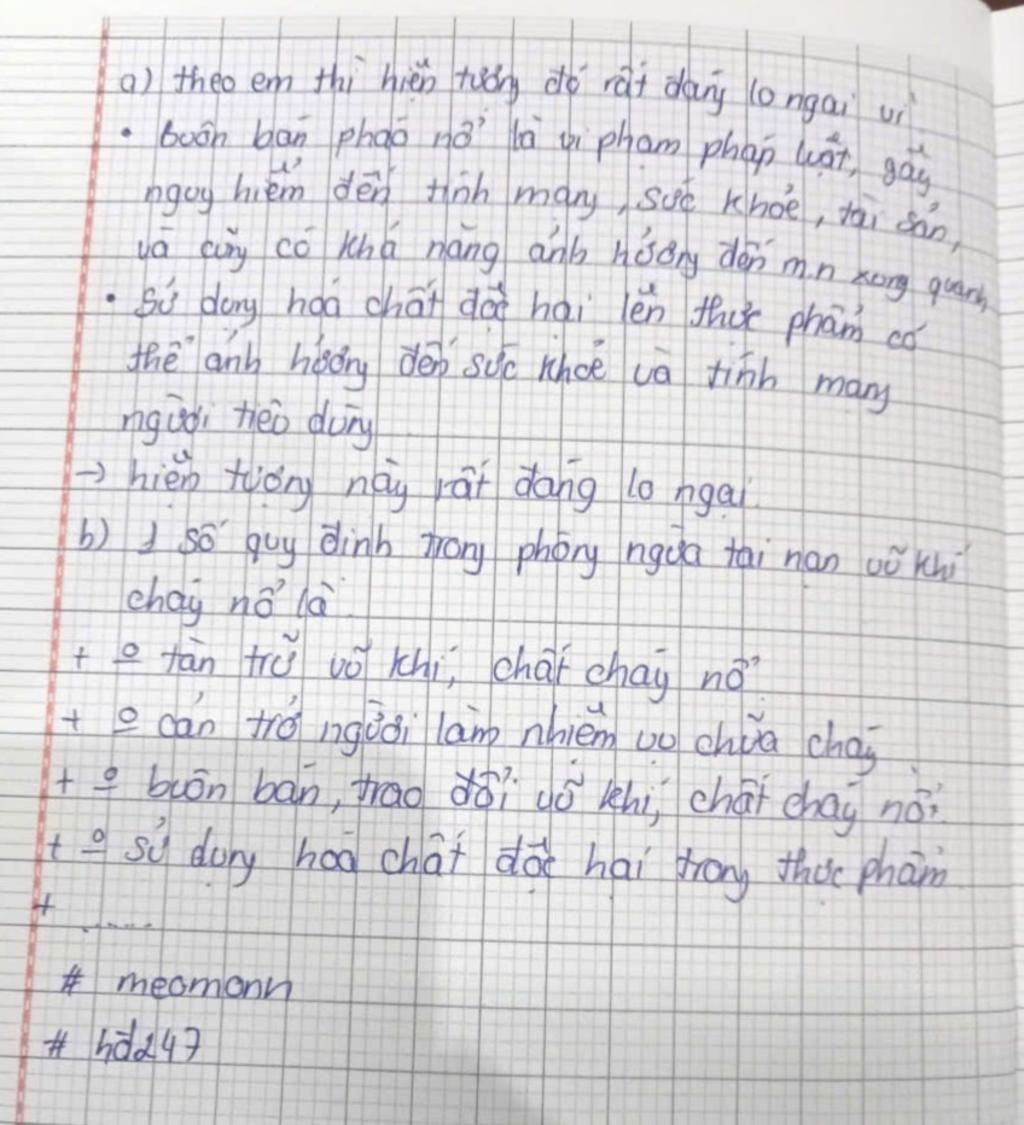 a) theo em thì hiện tượng đó rất đáng lo ngại vì
• buôn bán pháo nổ là vi phạm pháp luật, gây
nguy hiểm đến tính mạng, sức khỏe, tài sản,
và cũng có khả năng ảnh hưởng đến m.n xung quanh
• Sử dụng hoá chất độc hại lên thực phẩm có
thể ảnh hưởng đến sức khoẻ và tính mạng
người tiêu dùng
→ hiện tượng này rất đáng lo ngại.
b) 1 số quy định trong phòng ngừa tai nạn vũ khí
cháy nổ là
+ o tàn trữ vũ khí, chất cháy nổ
+ o cản trở người làm nhiệm vụ chữa cháy
+ o buôn bán, trao đổi vũ khí, chất cháy nổ.
+ o sử dụng hoá chất độc hại trong thực phẩm
+ .....
# meomonn
# hd247